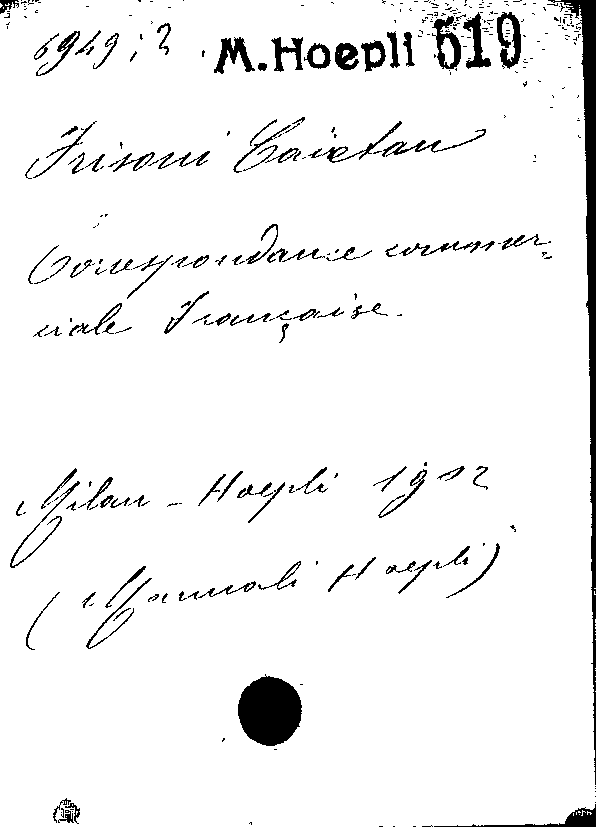 6949;2. M. Hoepli 519
Frisoni Caietan
Correspondance commer-
ciale Française.
Milan - Hoepli 1902
(Manuali Hoepli)